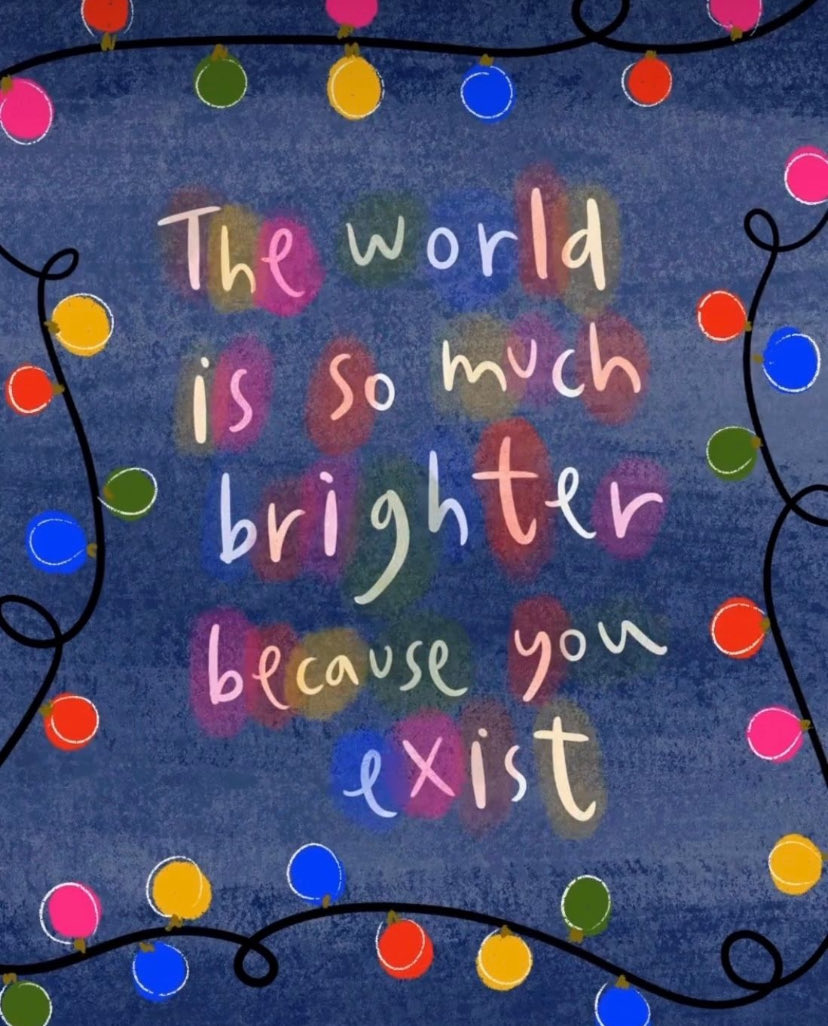 The world
is so much
brighter
because you
exist